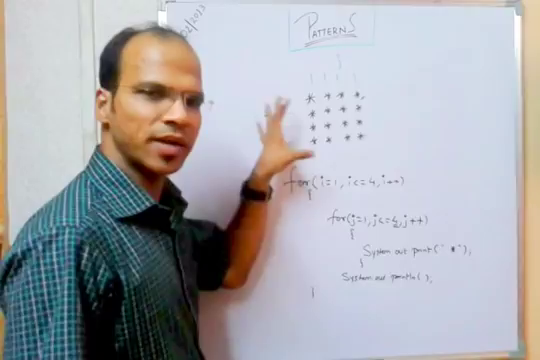 02/2013
PATTERNS
* * * *
* * * *
* * * *
* * * *
for(i=1, i<=4, i++)
{
for(j=1, j<=4, j++)
{
System.out.print(" *");
}
System.out.println( );
}